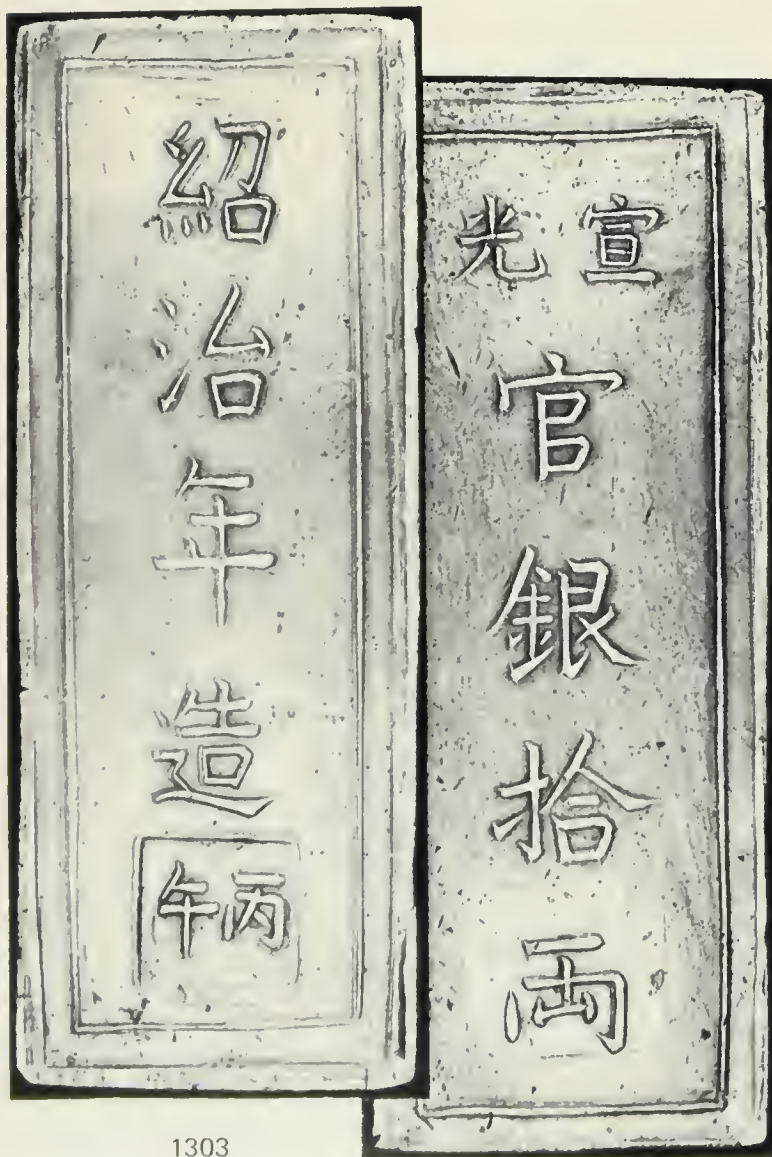 紹治年造
丙午
宣光
官銀拾両
1303